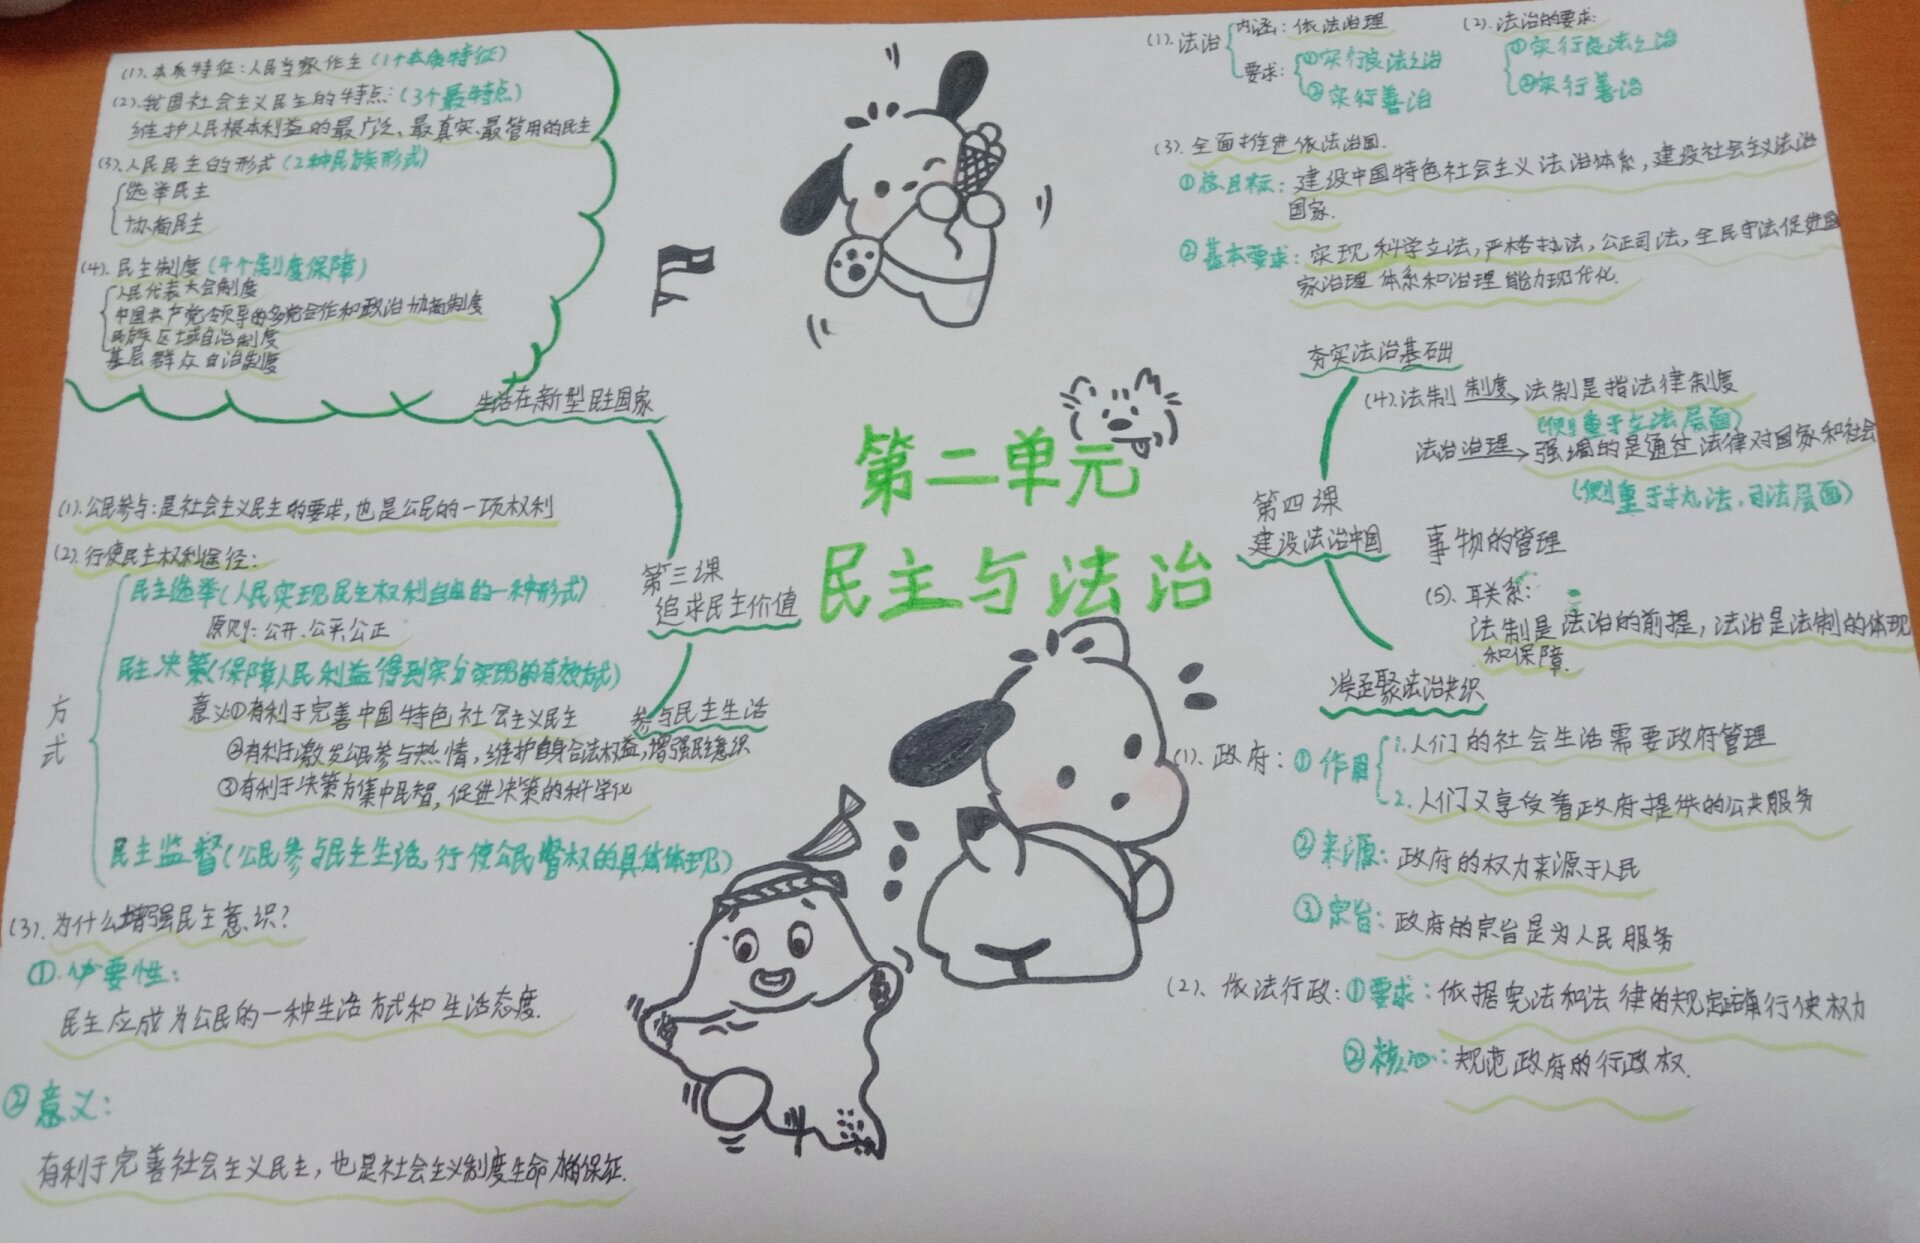 第二单元
民主与法治
第三课
追求民主价值
生活在新型民主国家
(1).本质特征:人民当家作主(1个本质特征)
(2).我国社会主义民主的特点:(3个最特点)
维护人民根本利益的最广泛、最真实、最管用的民主
(3).人民民主的形式(2种民族形式)
选举民主
协商民主
(4).民主制度(4个制度保障)
人民代表大会制度
中国共产党领导的多党合作和政治协商制度
民族区域自治制度
基层群众自治制度
参与民主生活
(1).公民参与:是社会主义民主的要求,也是公民的一项权利
(2).行使民主权利途径:
方式
民主选举(人民实现民主权利自由的一种形式)
原则:公开、公平、公正
民主决策(保障人民利益得到充分实现的有效方式)
意义:①有利于完善中国特色社会主义民主
②有利于激发公民参与热情,维护自身合法权益,增强民主意识
③有利于决策方集中民智,促进决策的科学化
民主监督(公民参与民主生活,行使公民督权的具体体现)
(3).为什么增强民主意识?
①.必要性:
民主应成为公民的一种生活方式和生活态度.
②意义:
有利于完善社会主义民主,也是社会主义制度生命力的保证.
第四课
建设法治中国
夯实法治基础
(1).法治
内涵:依法治理
要求:①实行良法之治
②实行善治
(2).法治的要求:
①实行良法之治
②实行善治
(3).全面推进依法治国.
①总目标:建设中国特色社会主义法治体系,建设社会主义法治
国家.
②基本要求:实现科学立法,严格执法,公正司法,全民守法促进国
家治理体系和治理能力现代化.
(4).法制 制度→法制是指法律制度
(侧重于立法层面)
法治 治理→强调的是通过法律对国家和社会
(侧重于执法、司法层面)
事物的管理
(5).联系:
法制是法治的前提,法治是法制的体现
和保障.
凝聚法治共识
(1).政府:①作用
1.人们的社会生活需要政府管理
2.人们又享受着政府提供的公共服务
②来源:政府的权力来源于人民
③宗旨:政府的宗旨是为人民服务
(2)、依法行政:①要求:依据宪法和法律的规定正确行使权力
②核心:规范政府的行政权.